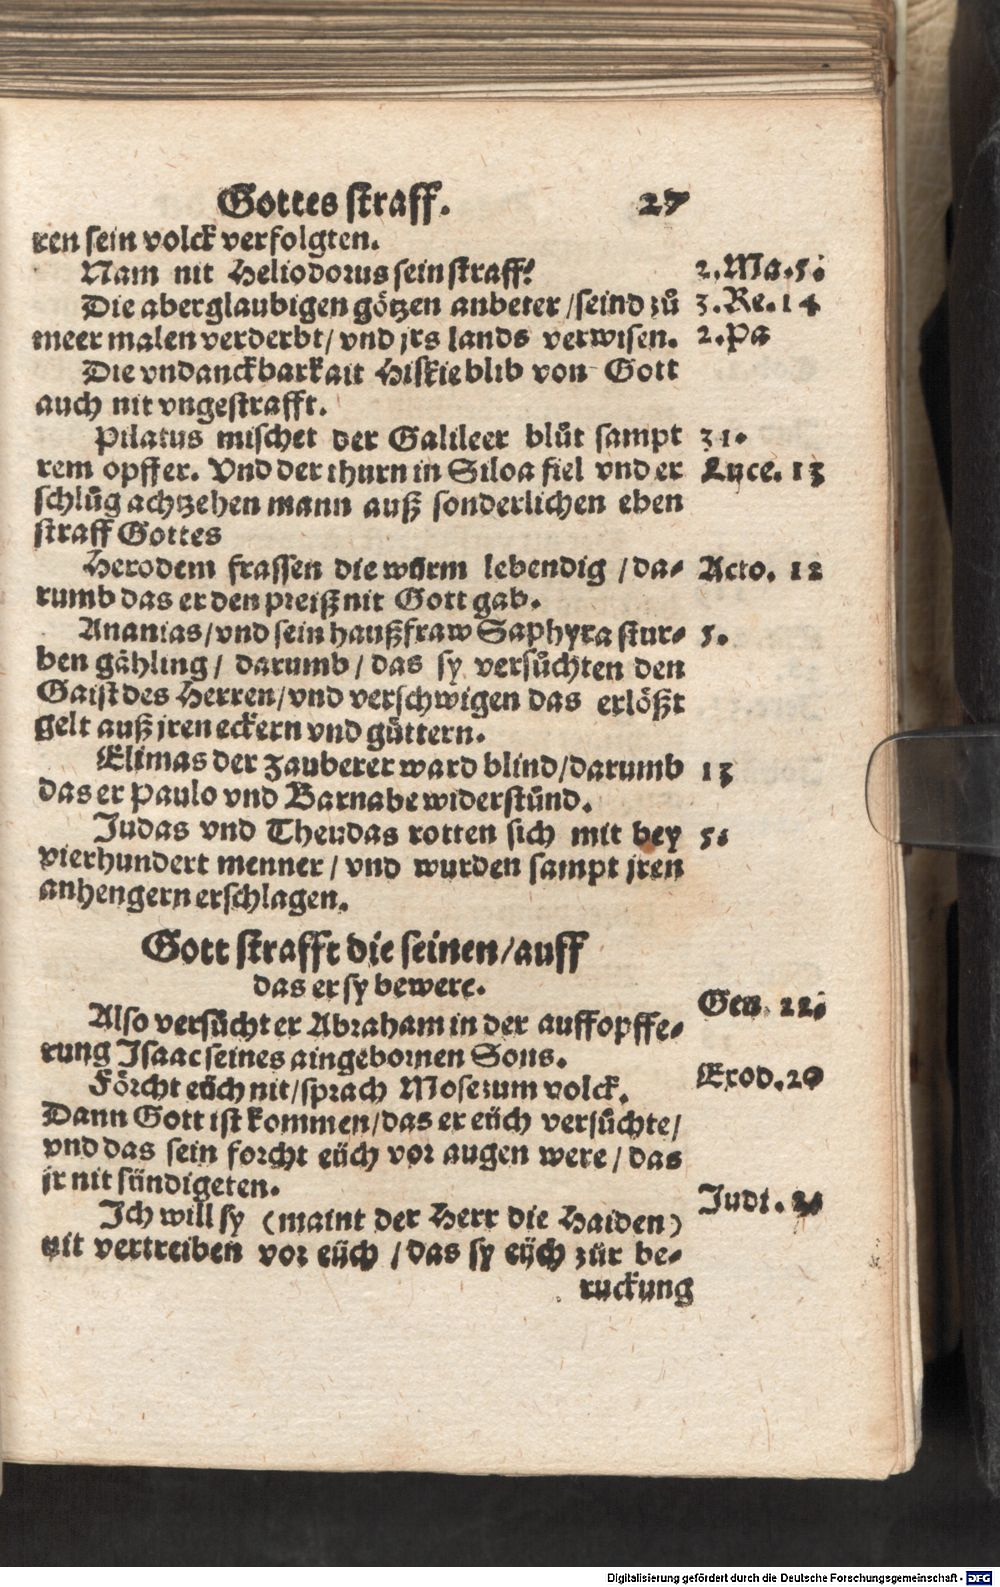 Gottes straff. 27
ren sein volck verfolgten.
Nam nit Heliodorus sein straff? 2.Ma.5.
Die aberglaubigen götzen anbeter/seind zů 3.Re.14
meer malen verderbt/vnd jrs lands verwisen. 2.Pa
Die vndanckbarkait Hiskie blib von Gott
auch nit vngestrafft.
Pilatus mischet der Galileer blůt sampt 31.
rem opffer. Vnd der thurn in Siloa fiel vnd er Luce. 13
schlůg achtzehen mann auß sonderlichen eben
straff Gottes
Herodem frassen die würm lebendig /da- Acto. 12
rumb das er den preiß nit Gott gab.
Ananias/vnd sein haußfraw Saphyra stur- 5.
ben gähling/ darumb/das sy versůchten den
Gaist des Herren/vnd verschwigen das erlößt
gelt auß jren eckern vnd güttern.
Elimas der zauberer ward blind/darumb 13
das er Paulo vnd Barnabe widerstůnd.
Judas vnd Theudas rotten sich mit bey 5.
vierhundert menner/vnd wurden sampt jren
anhengern erschlagen.
Gott strafft die seinen/auff
das er sy bewere.
Gen. 22.
Also versůcht er Abraham in der auffopffe-
rung Isaac seines aingebornen Sons.
Förcht eüch nit/sprach Mose zum volck. Exod.20
Dann Gott ist kommen/das er eüch versůchte/
vnd das sein forcht eüch vor augen were/das
jr nit sündigeten.
Ich will sy (maint der Herr die Haiden) Judi.
nit vertreiben vor eüch /das sy eüch zůr be-
ruckung
Digitalisierung gefördert durch die Deutsche Forschungsgemeinschaft - DFG